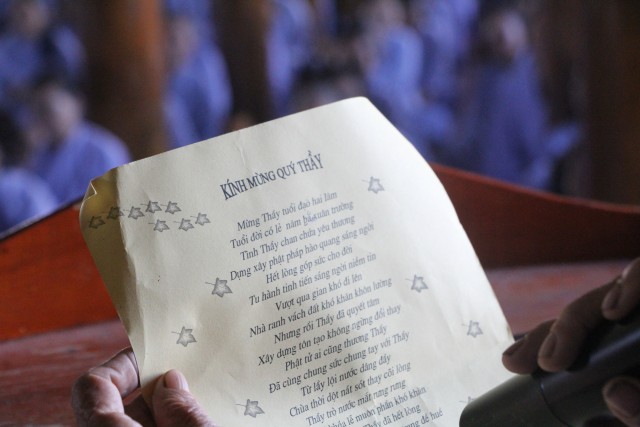 KÍNH MỪNG QUÝ THẦY
Mừng Thầy tuổi đạo hai lăm
Tuổi đời có lẻ năm ba xuân trường
Tình Thầy chan chứa yêu thương
Dựng xây phật pháp hào quang sáng ngời
Hết lòng góp sức cho đời
Tu hành tinh tiến sáng ngời niềm tin
Vượt qua gian khó đi lên
Nhà ranh vách đất khó khăn khôn lường
Nhưng rồi Thầy đã quyết tâm
Xây dựng tôn tạo không ngừng đổi thay
Phật tử ai cũng thương Thầy
Đã cùng chung sức chung tay với Thầy
Từ lấy lội nước dâng đầy
Chùa thời dột nát sót thay cõi lòng
Thầy trò nước mắt rưng rưng
lẽ muôn phần khó khăn
Thầy đã hết lòng
để huế